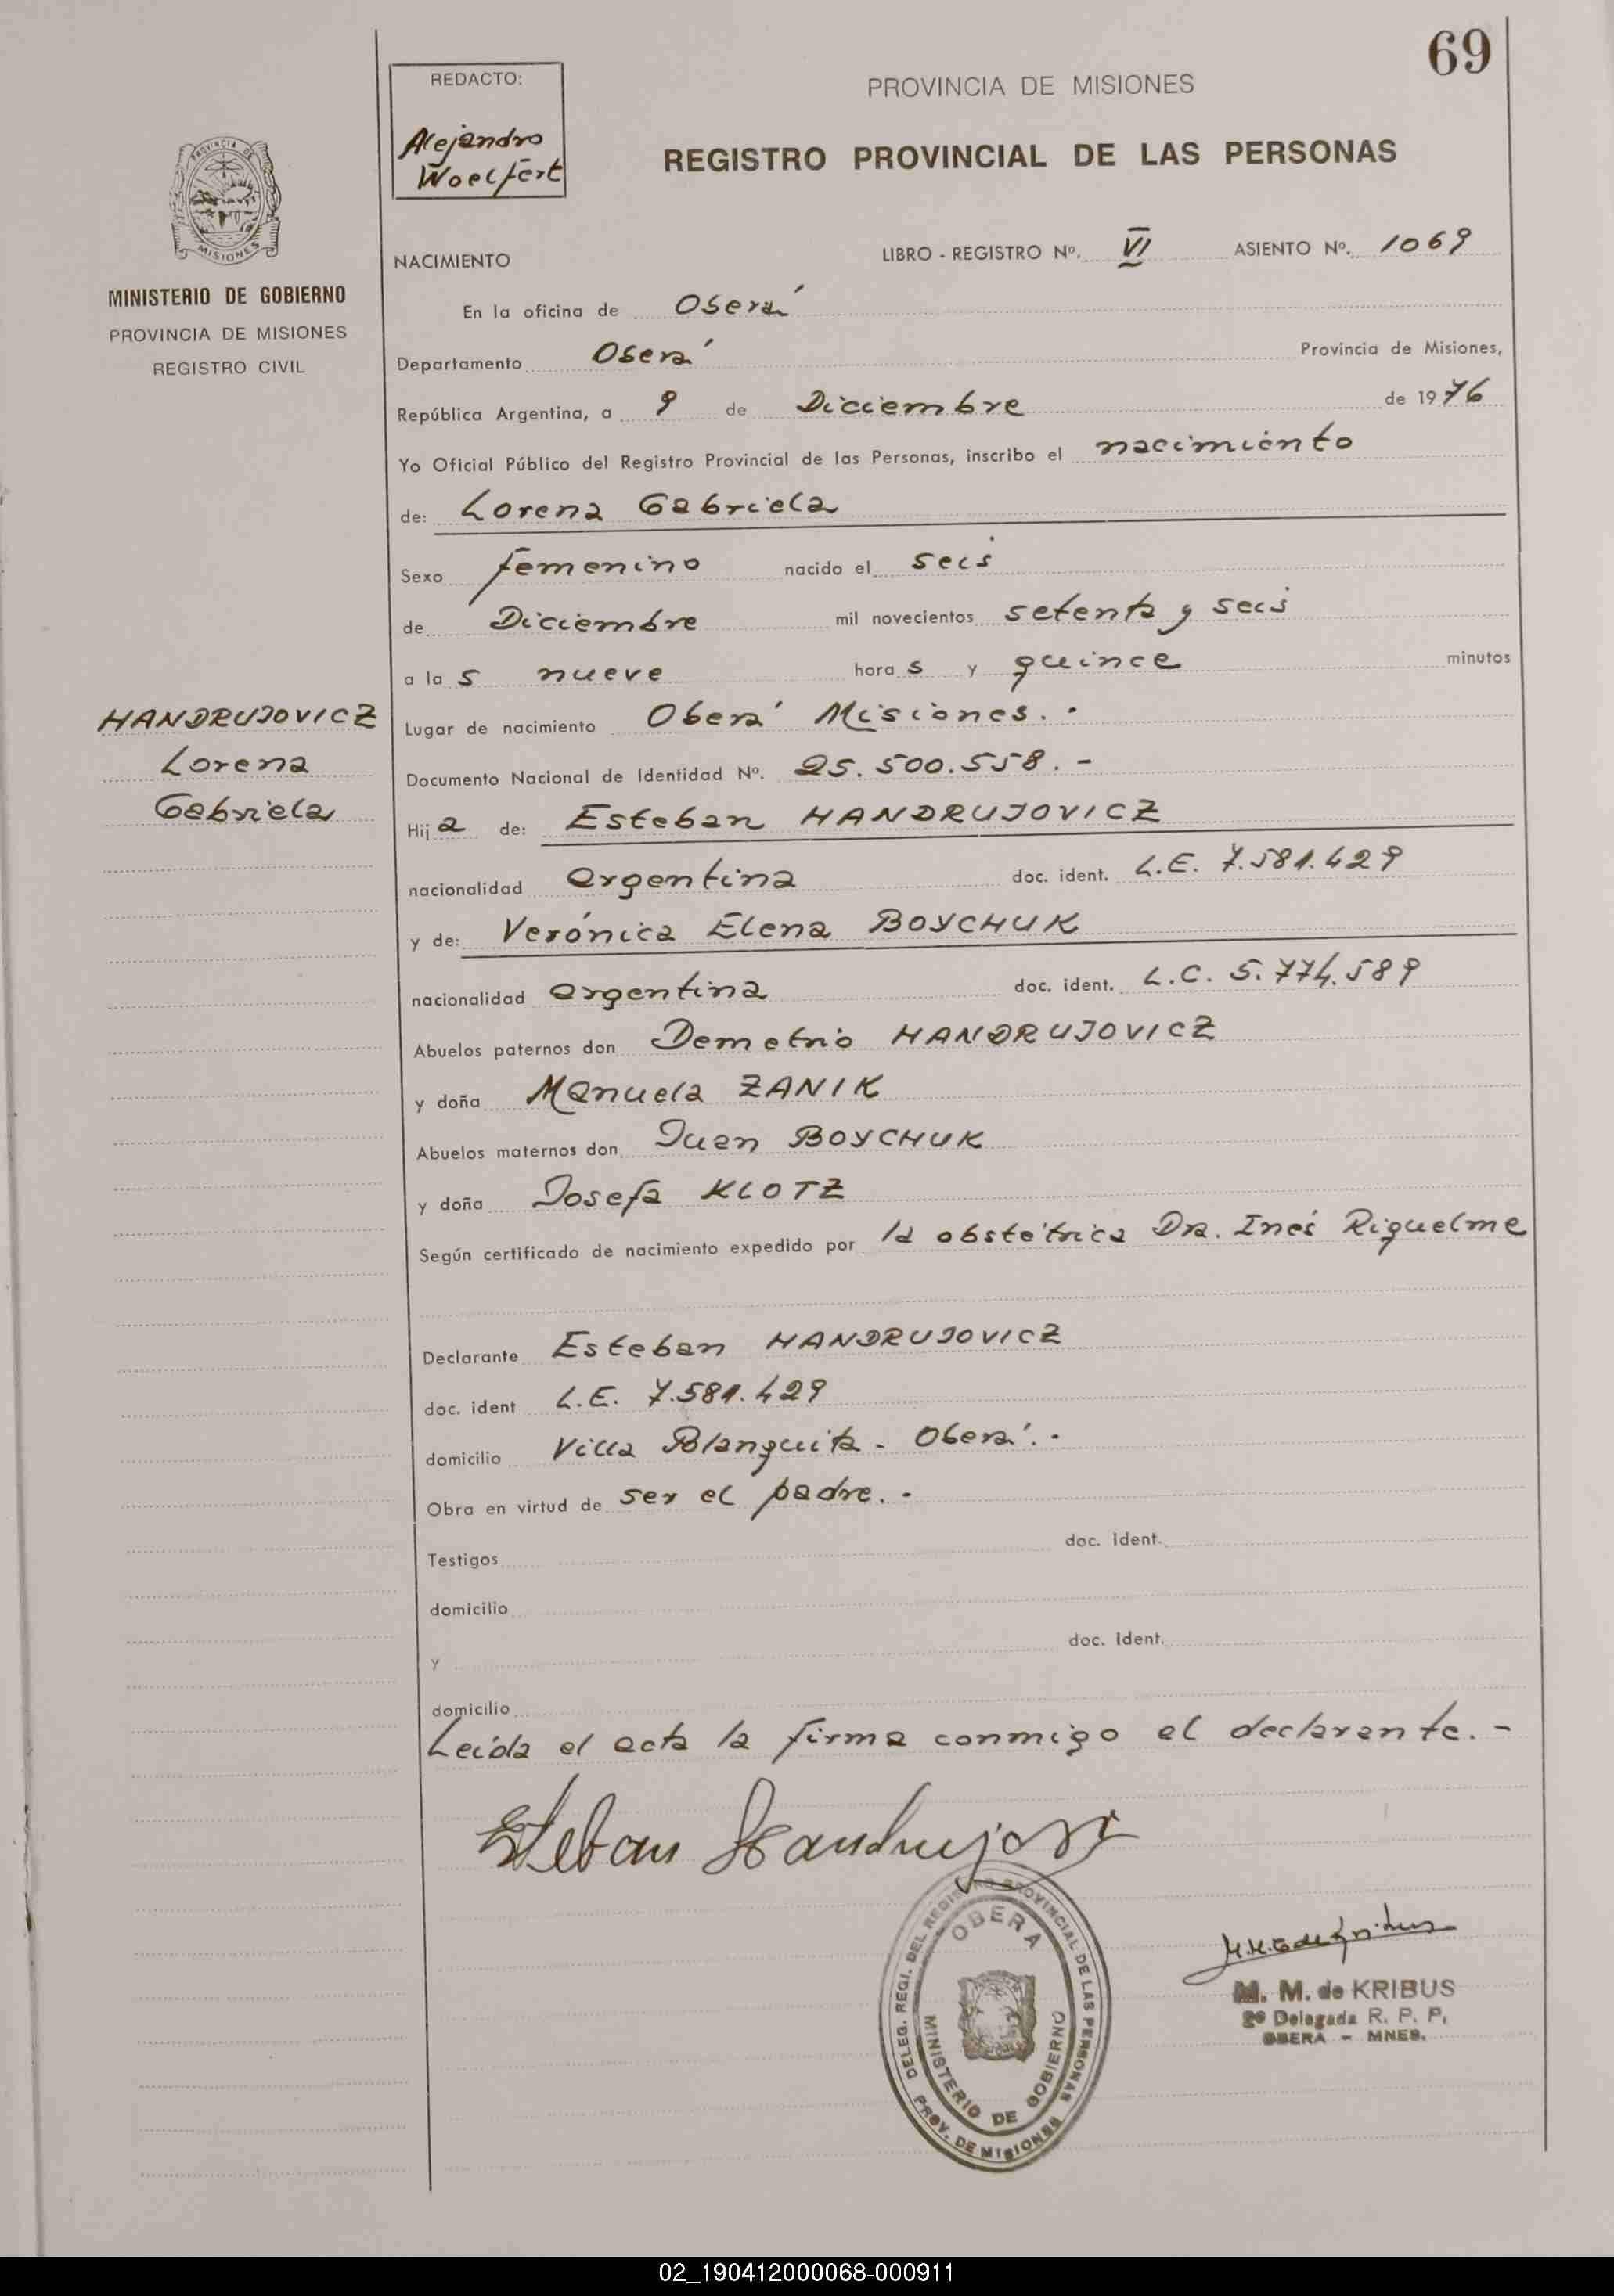 69
REDACTO:
Alejandro
Woelfert
PROVINCIA DE MISIONES
REGISTRO PROVINCIAL DE LAS PERSONAS
PROVINCIA DE
MISIONES
MINISTERIO DE GOBIERNO
PROVINCIA DE MISIONES
REGISTRO CIVIL
NACIMIENTO LIBRO - REGISTRO Nº. VI ASIENTO Nº. 1069
En la oficina de Oberá
Departamento Oberá Provincia de Misiones,
República Argentina, a 9 de Diciembre de 1976
Yo Oficial Público del Registro Provincial de las Personas, inscribo el nacimiento
de: Lorena Gabriela
Sexo femenino nacido el seis
de Diciembre mil novecientos setenta y seis
a las nueve horas y quince minutos
HANDRUJOVICZ
Lorena
Gabriela
Lugar de nacimiento Oberá Misiones.-
Documento Nacional de Identidad Nº. 25.500.558.-
Hija de: Esteban HANDRUJOVICZ
nacionalidad argentina doc. ident. L.E. 7.581.429
y de: Verónica Elena BOYCHUK
nacionalidad argentina doc. ident. L.C. 5.774.589
Abuelos paternos don Demetrio HANDRUJOVICZ
y doña Manuela ZANIK
Abuelos maternos don Juan BOYCHUK
y doña Josefa KLOTZ
Según certificado de nacimiento expedido por la obstétrica Dra. Inés Riquelme
Declarante Esteban HANDRUJOVICZ
doc. ident L.E. 7.581.429
domicilio Villa Blanquita - Oberá.-
Obra en virtud de ser el padre.-
Testigos doc. ident.
domicilio
y doc. ident.
domicilio
Leída el acta la firma conmigo el declarante.-
Esteban Handrujovi
DELEG. REGI. DEL REGISTRO PROVINCIAL DE LAS PERSONAS
OBERA
MINISTERIO DE GOBIERNO
PROV. DE MISIONES
M. M. de KRIBUS
2º Delegada R. P. P.
OBERA - MNES.
02_190412000068-000911